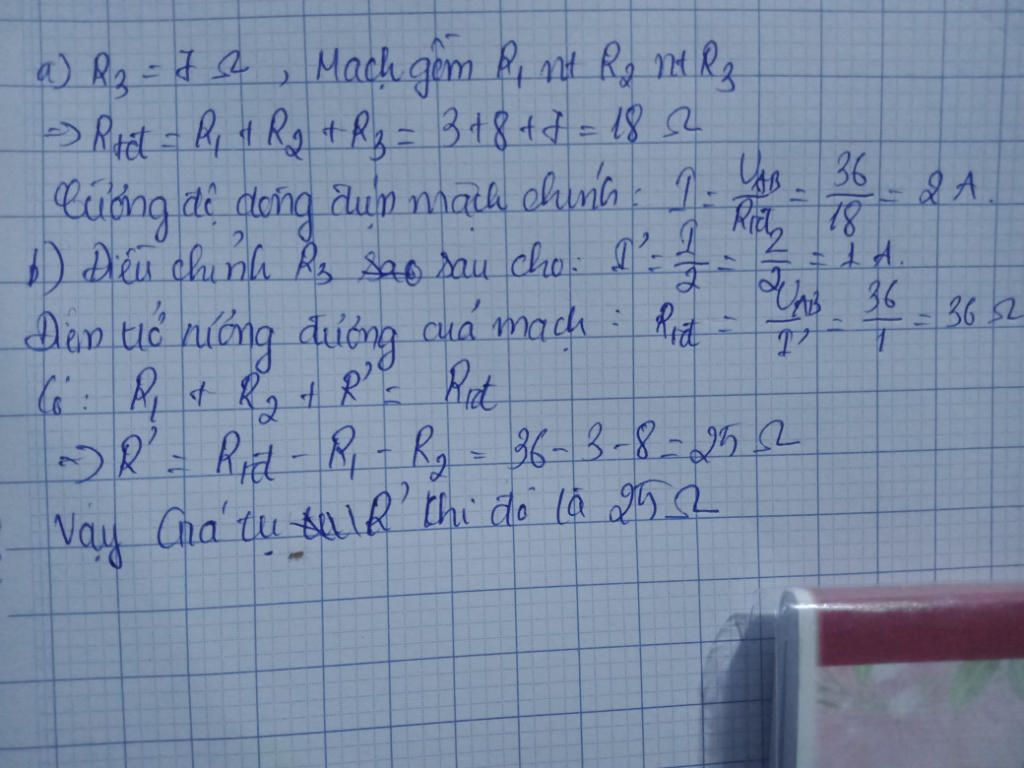 a) R₃ = 7 Ω, Mạch gồm R₁ nt R₂ nt R₃
=> Rtđ = R₁ + R₂ + R₃ = 3+8+7 = 18 Ω
Cường độ dòng điện mạch chính: I = UAB/Rtđ = 36/18 = 2 A.
b) Điều chỉnh R₃ sao sau cho: I' = I/2 = 2/2 = 1 A.
Điện trở tương đương của mạch: Rtđ = UAB/I' = 36/1 = 36 Ω
Có: R₁ + R₂ + R' = Rtđ
=> R' = Rtđ - R₁ - R₂ = 36 - 3 - 8 = 25 Ω
Vậy Giá trị R' khi đó là 25 Ω